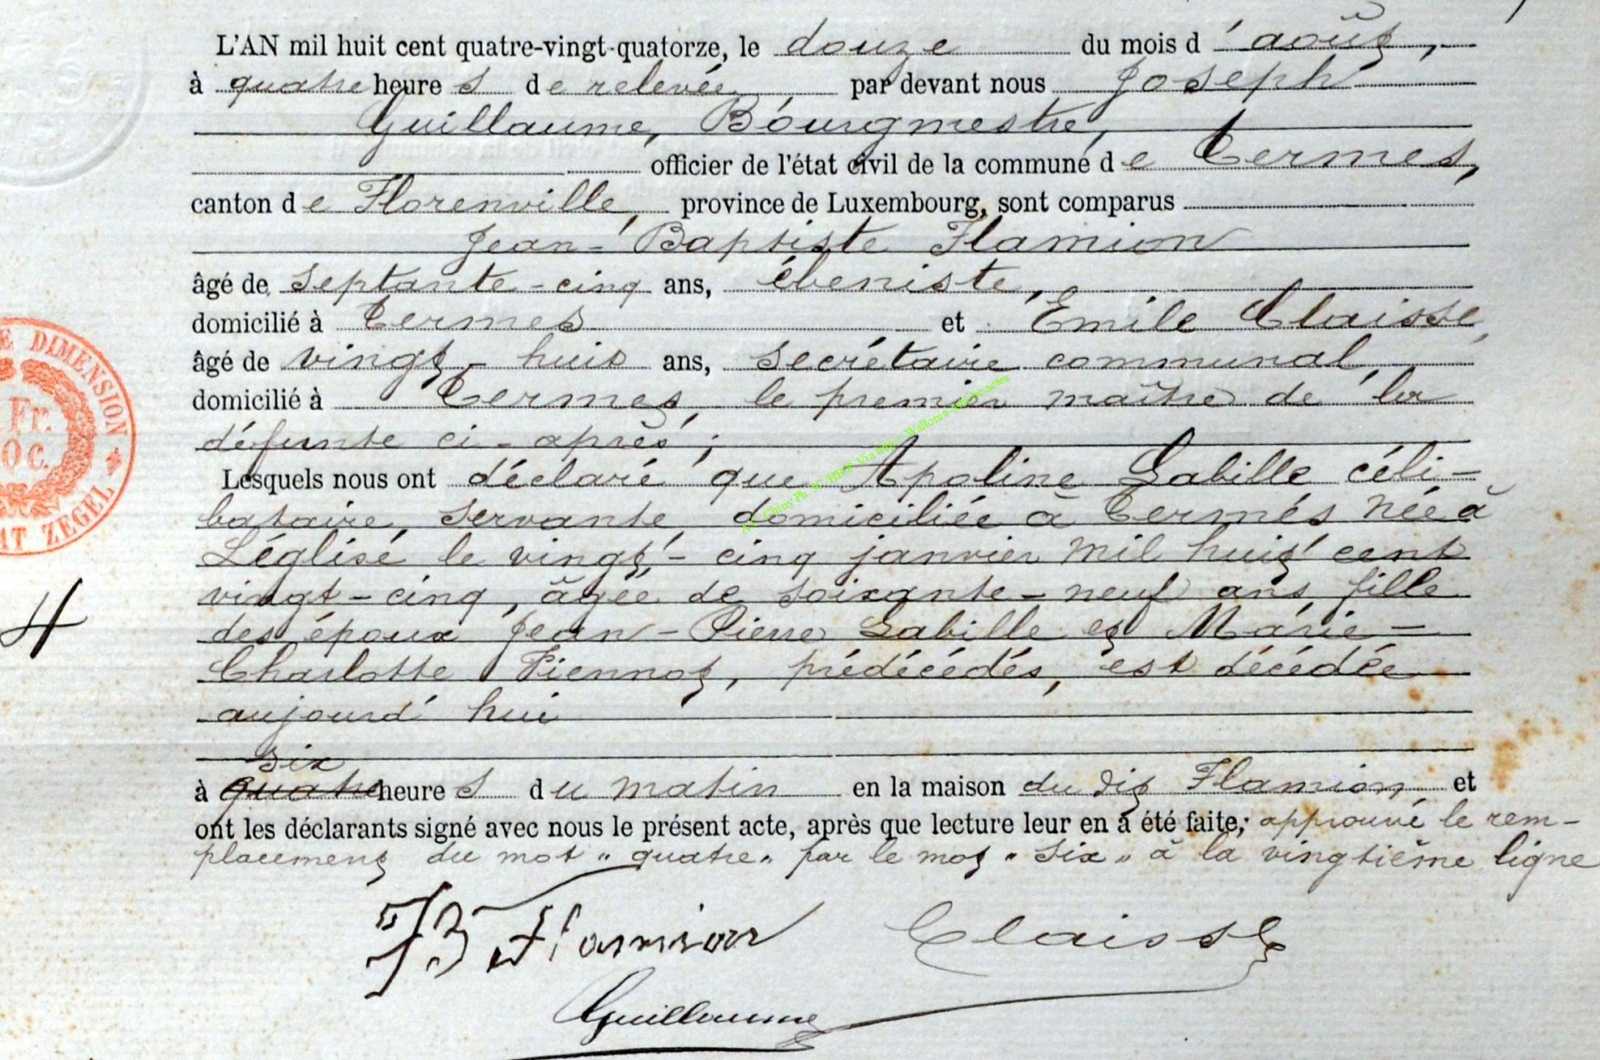 L'AN mil huit cent quatre-vingt-quatorze, le douze du mois d'août,
à quatre heures de relevée, par devant nous Joseph
Guillaume, Bourgmestre,
officier de l'état civil de la commune de Termes,
canton de Florenville, province de Luxembourg, sont comparus
Jean-Baptiste Flamion
âgé de septante-cinq ans, ébeniste,
domicilié à Termes et Emile Claisse,
âgé de vingt-huit ans, secrétaire communal,
domicilié à Termes, le premier maître de la
défunte ci-après;
Lesquels nous ont déclaré que Apoline Labille céli-
bataire, servante, domiciliée à Termes née à
Léglise le vingt-cinq janvier mil huit cent
vingt-cinq, âgée de soixante-neuf ans fille
des époux Jean-Pierre Labille et Marie-
Charlotte Fiennot, prédécédés, est décédée
aujourd'hui
six
à quatre heures du matin en la maison du dit Flamion et
ont les déclarants signé avec nous le présent acte, après que lecture leur en a été faite, approuvé le rem-
placement du mot "quatre" par le mot "six" à la vingtième ligne
JB Flamion Claisse
Guillaume
DIMENSION
Fr.
0 C.
ZEGEL
4